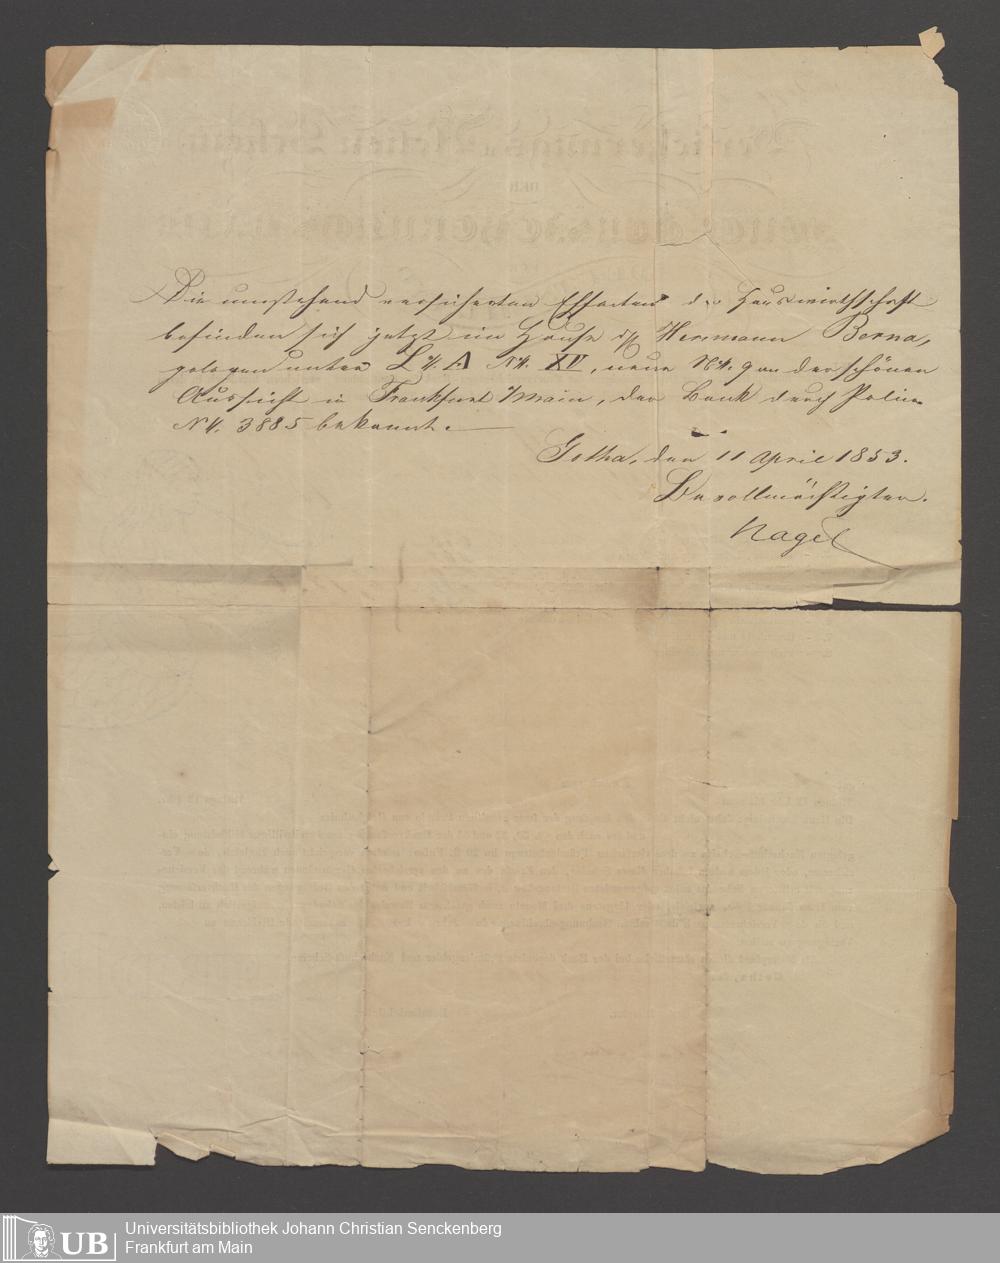 Die umstehend versicherten Effecten der Hauswirthschaft
befinden sich jetzt im Hause des Hermann Berna,
gelegen unter Lit. A No. XV, neue No. 9 an der schönen
Aussicht in Frankfurt a/Main, der Bank durch Police
No. 3885 bekannt.
Gotha, den 11 April 1853.
Bevollmächtigter.
Nagel
Universitätsbibliothek Johann Christian Senckenberg
Frankfurt am Main
UB